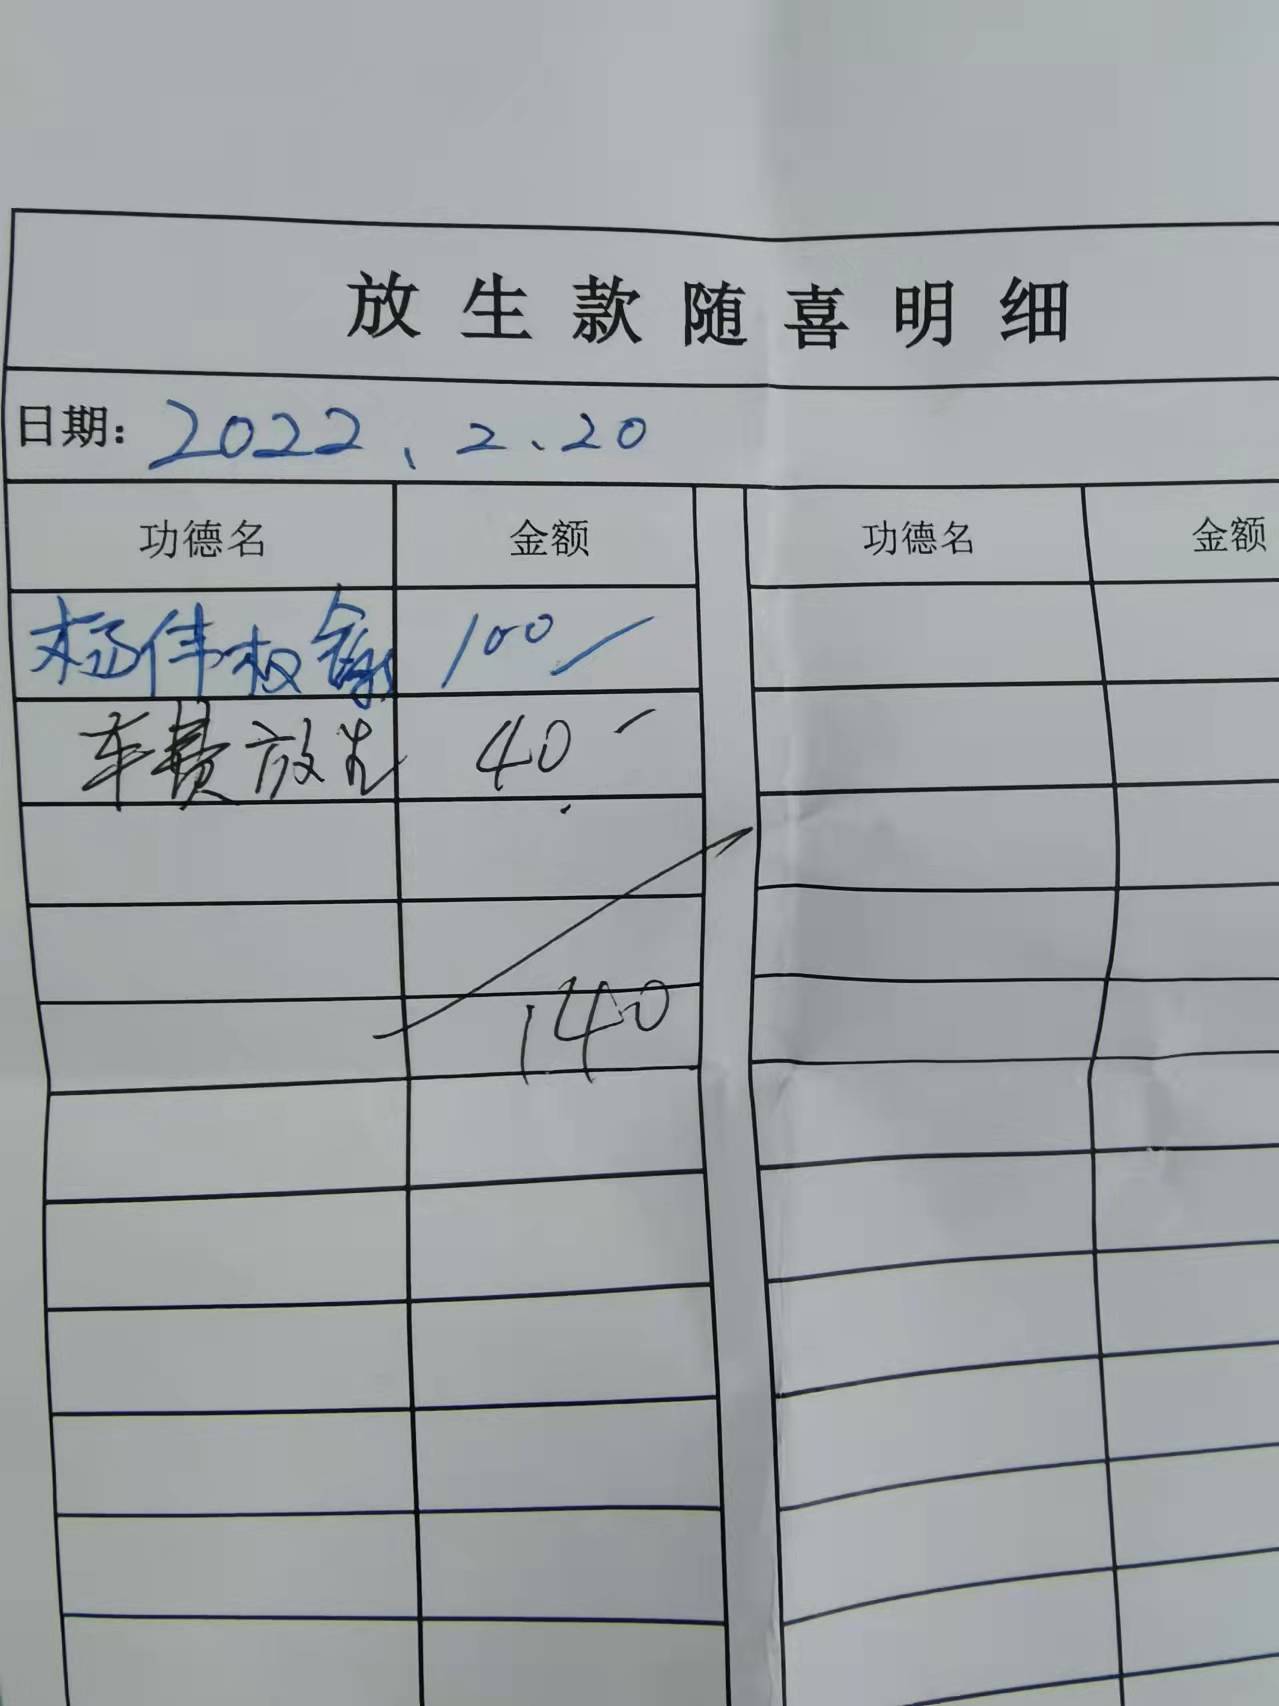 放生款随喜明细
日期: 2022、2、20
功德名 金额 功德名 金额
杨伟权 100
车费放生 40
140